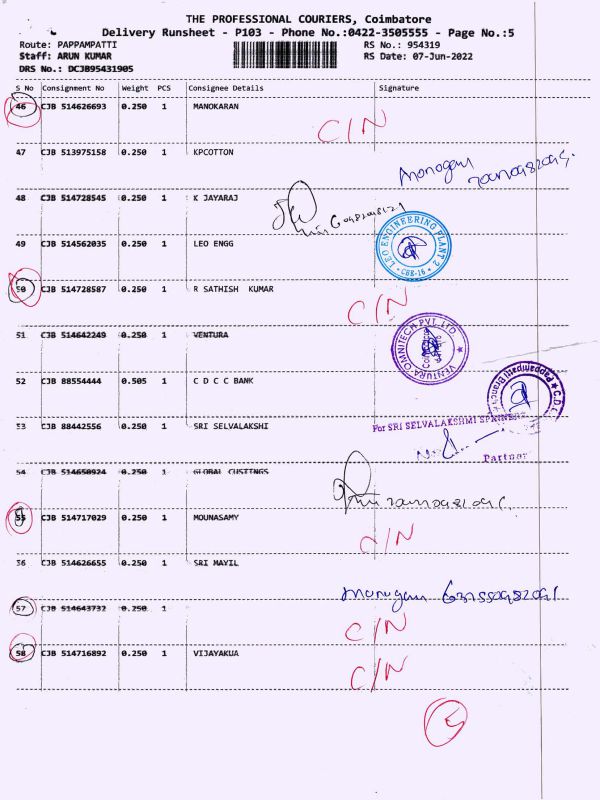 THE PROFESSIONAL COURIERS, Coimbatore
Delivery Runsheet - P103 - Phone No.:0422-3505555 - Page No.:5
Route: PAPPAMPATTI RS No.: 954319
Staff: ARUN KUMAR RS Date: 07-Jun-2022
DRS No.: DCJB95431905
S No Consignment No Weight PCS Consignee Details Signature
46 CJB 514626693 0.250 1 MANOKARAN
C/N
47 CJB 513975158 0.250 1 KPCOTTON
48 CJB 514728545 0.250 1 K JAYARAJ
49 CJB 514562035 0.250 1 LEO ENGG
LEO ENGINEERING PLANT 2
CBE-16
50 CJB 514728587 0.250 1 R SATHISH KUMAR
C/N
51 CJB 514642249 0.250 1 VENTURA
VENTURA OMNITECH PVT. LTD
52 CJB 88554444 0.505 1 C D C C BANK
Pappampatti Branch
53 CJB 88442556 0.250 1 SRI SELVALAKSHI
For SRI SELVALAKSHMI SPINNERS
Partner
54 CJB 514650924 0.250 1 GLOBAL CUSTINGS
55 CJB 514717029 0.250 1 MOUNASAMY
C/N
56 CJB 514626655 0.250 1 SRI MAYIL
57 CJB 514643732 0.250 1
C/N
58 CJB 514716892 0.250 1 VIJAYAKUA
C/N